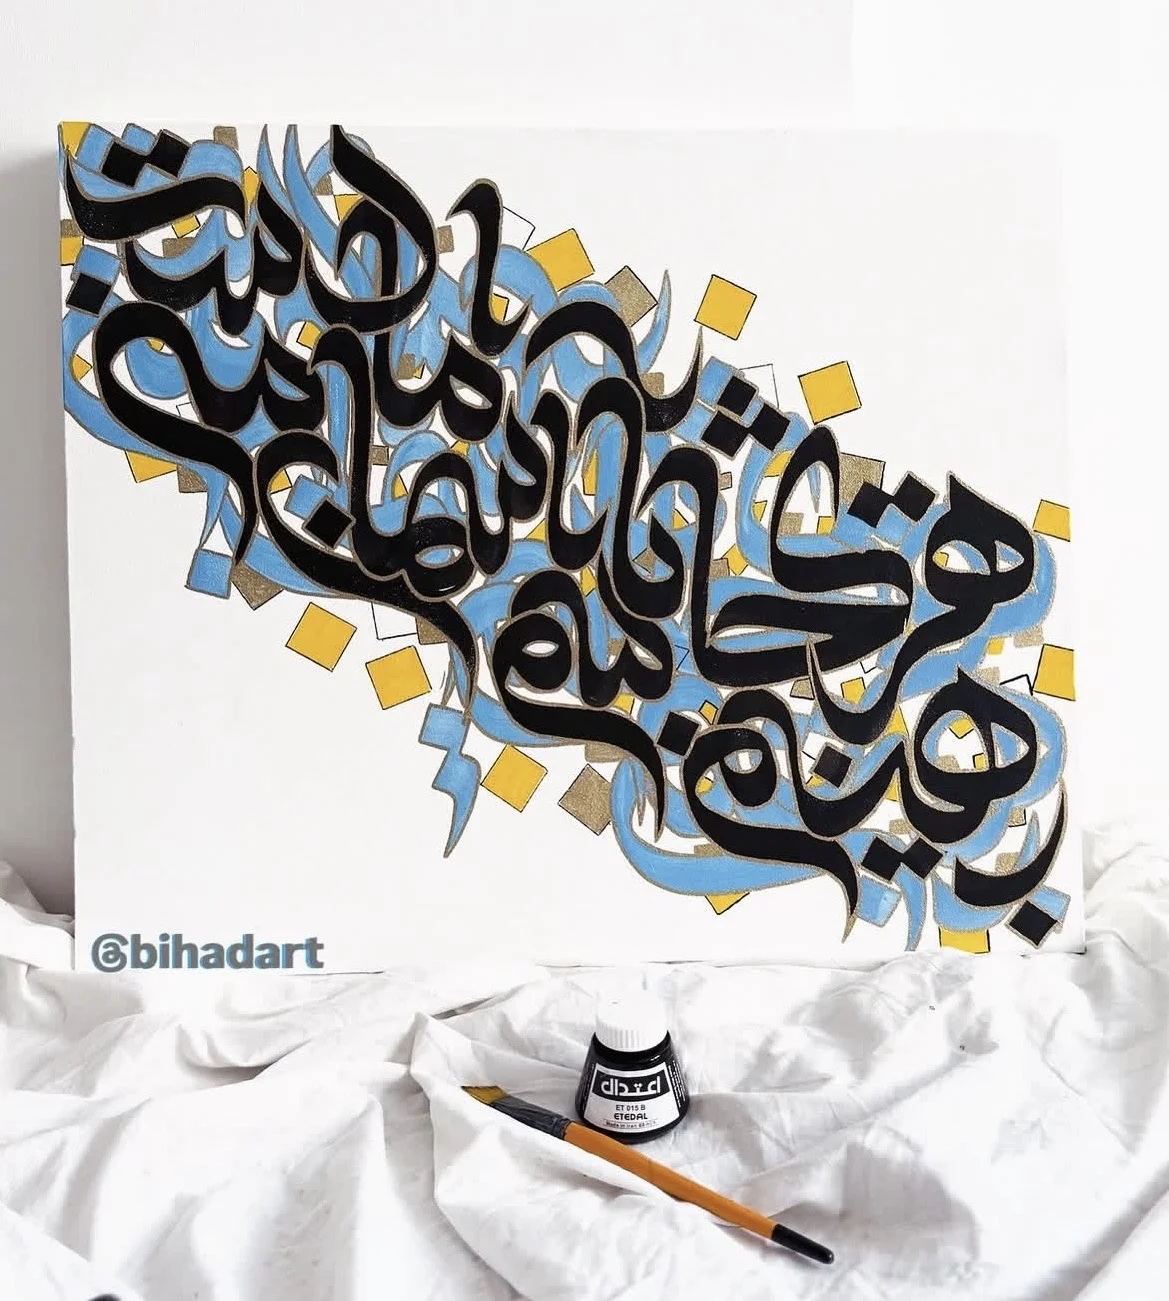 هر کجا هستم باشم آسمان مال من است
@bihadart
اعتدال
ET 015 B
ETEDAL